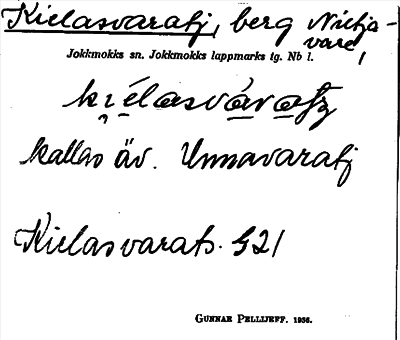 Kielasvaratj, berg Nietja-
vare,
Jokkmokks sn. Jokkmokks lappmarks tg. Nb l.
kallas äv. Unnavaratj
Kielasvarats. G21
GUNNAR PELLIJEFF. 1956.